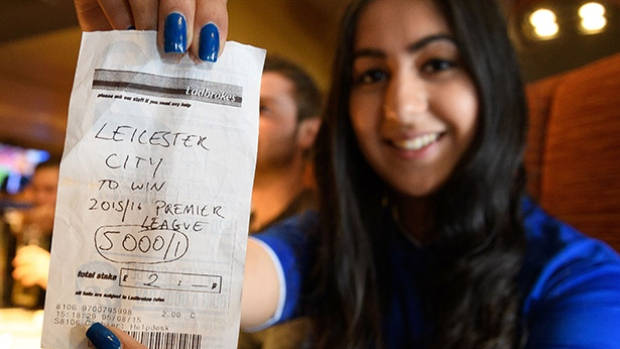 please ask our staff if you need any help
Ladbrokes
LEICESTER
CITY
TO WIN
2015/16 PREMIER
LEAGUE
5000/1
total stake £ 2 : — p
all bets are subject to Ladbrokes rules
8106 9700795998
2.00 C
Helpdesk